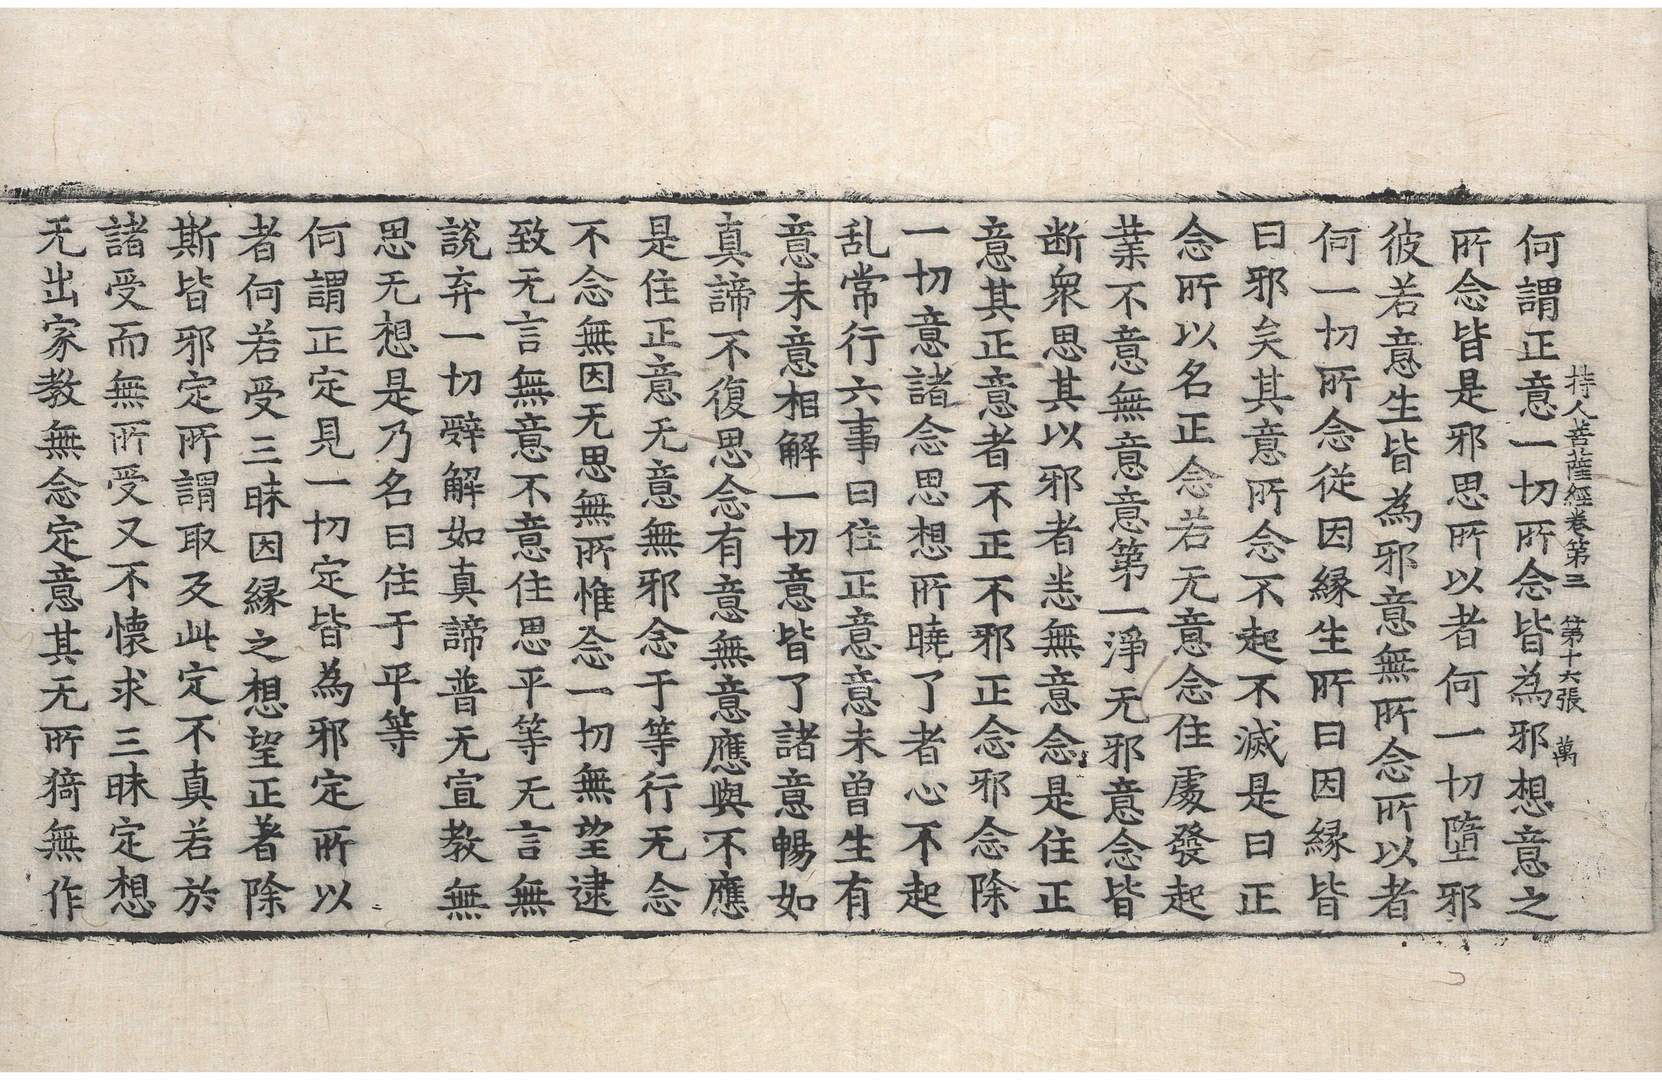 持人菩薩經卷第三　第十六張　萬
何謂正意一切所念皆為邪想意之
所念皆是邪思所以者何一切墮邪
彼若意生皆為邪意無所念所以者
何一切所念從因緣生所曰因緣皆
曰邪矣其意所念不起不滅是曰正
念所以名正念若无意念住處發起
業不意無意意第一淨无邪意念皆
断衆思其以邪者悉無意念是住正
意其正意者不正不邪正念邪念除
一切意諸念思想所曉了者心不起
乱常行六事曰住正意意未曾生有
意未意相解一切意皆了諸意暢如
真諦不復思念有意無意應與不應
是住正意无意無邪念于等行无念
不念無因无思無所惟念一切無望逮
致无言無意不意住思平等无言無
說弃一切辤解如真諦普无宣教無
思无想是乃名曰住于平等
何謂正定見一切定皆為邪定所以
者何若受三昧因緣之想望正著除
斯皆邪定所謂取及此定不真若於
諸受而無所受又不懷求三昧定想
无出家教無念定意其无所猗無作